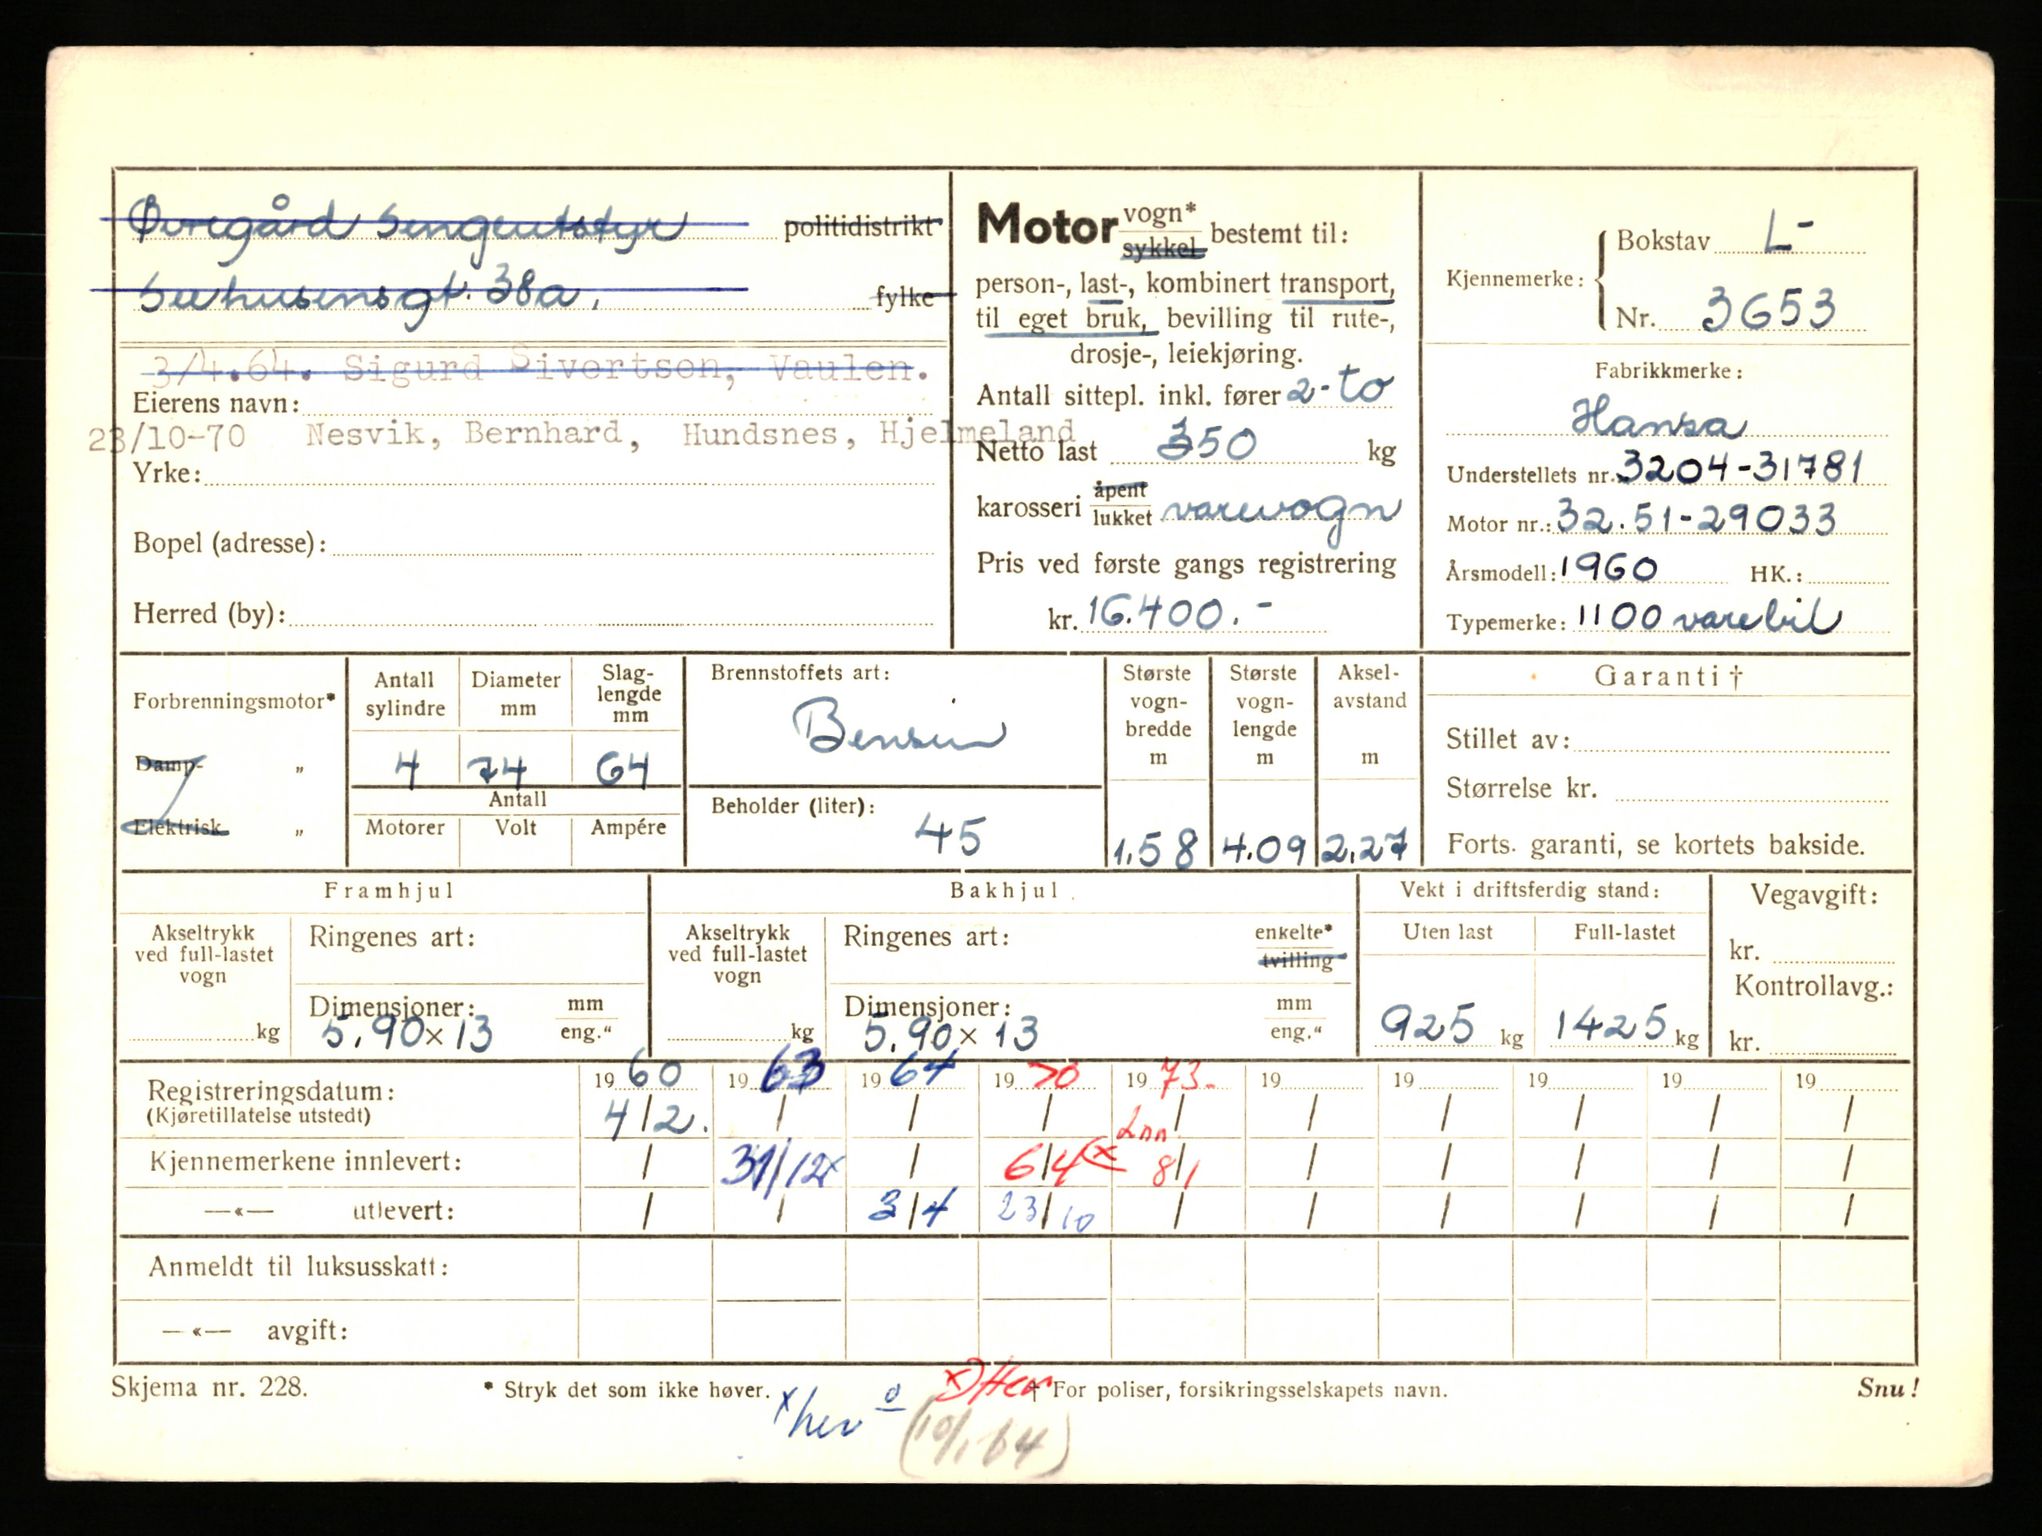 Øvregård Sengeutstyr politidistrikt
Seehusensgt. 38a, fylke
3/4.64. Sigurd Sivertsen, Vaulen.
Eierens navn:
23/10-70 Nesvik, Bernhard, Hundsnes, Hjelmeland
Yrke:
Bopel (adresse):
Herred (by):
Motor vogn* sykkel bestemt til:
person-, last-, kombinert transport,
til eget bruk, bevilling til rute-,
drosje-, leiekjøring.
Antall sittepl. inkl. fører 2-to
Netto last 350 kg
karosseri åpent lukket varevogn
Pris ved første gangs registrering
kr. 16.400.-
Kjennemerke: Bokstav L-
Nr. 3653
Fabrikkmerke:
Hansa
Understellets nr. 3204-31781
Motor nr.: 32.51-29033
Årsmodell: 1960 HK.:
Typemerke: 1100 varebil
Forbrenningsmotor*
Damp- „
Elektrisk „
Antall sylindre Diameter mm Slag-lengde mm
4 74 64
Antall
Motorer Volt Ampére
Brennstoffets art:
Bensin
Beholder (liter):
45
Største vogn-bredde m Største vogn-lengde m Aksel-avstand m
1.58 4.09 2.27
Garanti †
Stillet av:
Størrelse kr.
Forts. garanti, se kortets bakside.
Framhjul
Akseltrykk ved full-lastet vogn
kg
Ringenes art:
Dimensjoner: mm eng."
5.90 x 13
Bakhjul
Akseltrykk ved full-lastet vogn
kg
Ringenes art: enkelte* tvilling
Dimensjoner: mm eng."
5.90 x 13
Vekt i driftsferdig stand:
Uten last Full-lastet
925 kg 1425 kg
Vegavgift:
kr.
Kontrollavg.:
kr.
Registreringsdatum: 1960 1963 1964 1970 1973. 19 19 19 19 19
(Kjøretillatelse utstedt) 4/2. / / / / / / / / /
Kjennemerkene innlevert: / 31/12x / 6/4 x 8/1 / / / / /
—«— utlevert: / / 3/4 23/10 / / / / / /
Anmeldt til luksusskatt:
—«— avgift:
Skjema nr. 228.
* Stryk det som ikke høver.
† For poliser, forsikringsselskapets navn.
Snu!
x her
(10/1 64)